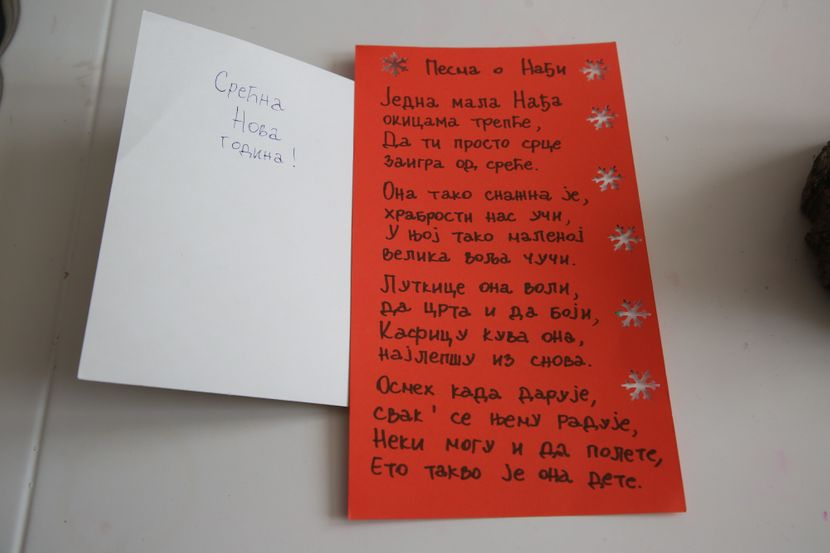 Срећна
Нова
година!
Песма о Нађи
Једна мала Нађа
окицама трепће,
Да ти просто срце
заигра од среће.
Она тако снажна је,
храбрости нас учи,
У њој тако маленој
велика воља чучи.
Луткице она воли,
да црта и да боји,
Кафицу кува она,
најлепшу из снова.
Осмех када дарује,
свак' се њему радује,
Неки могу и да полете,
Ето такво је она дете.